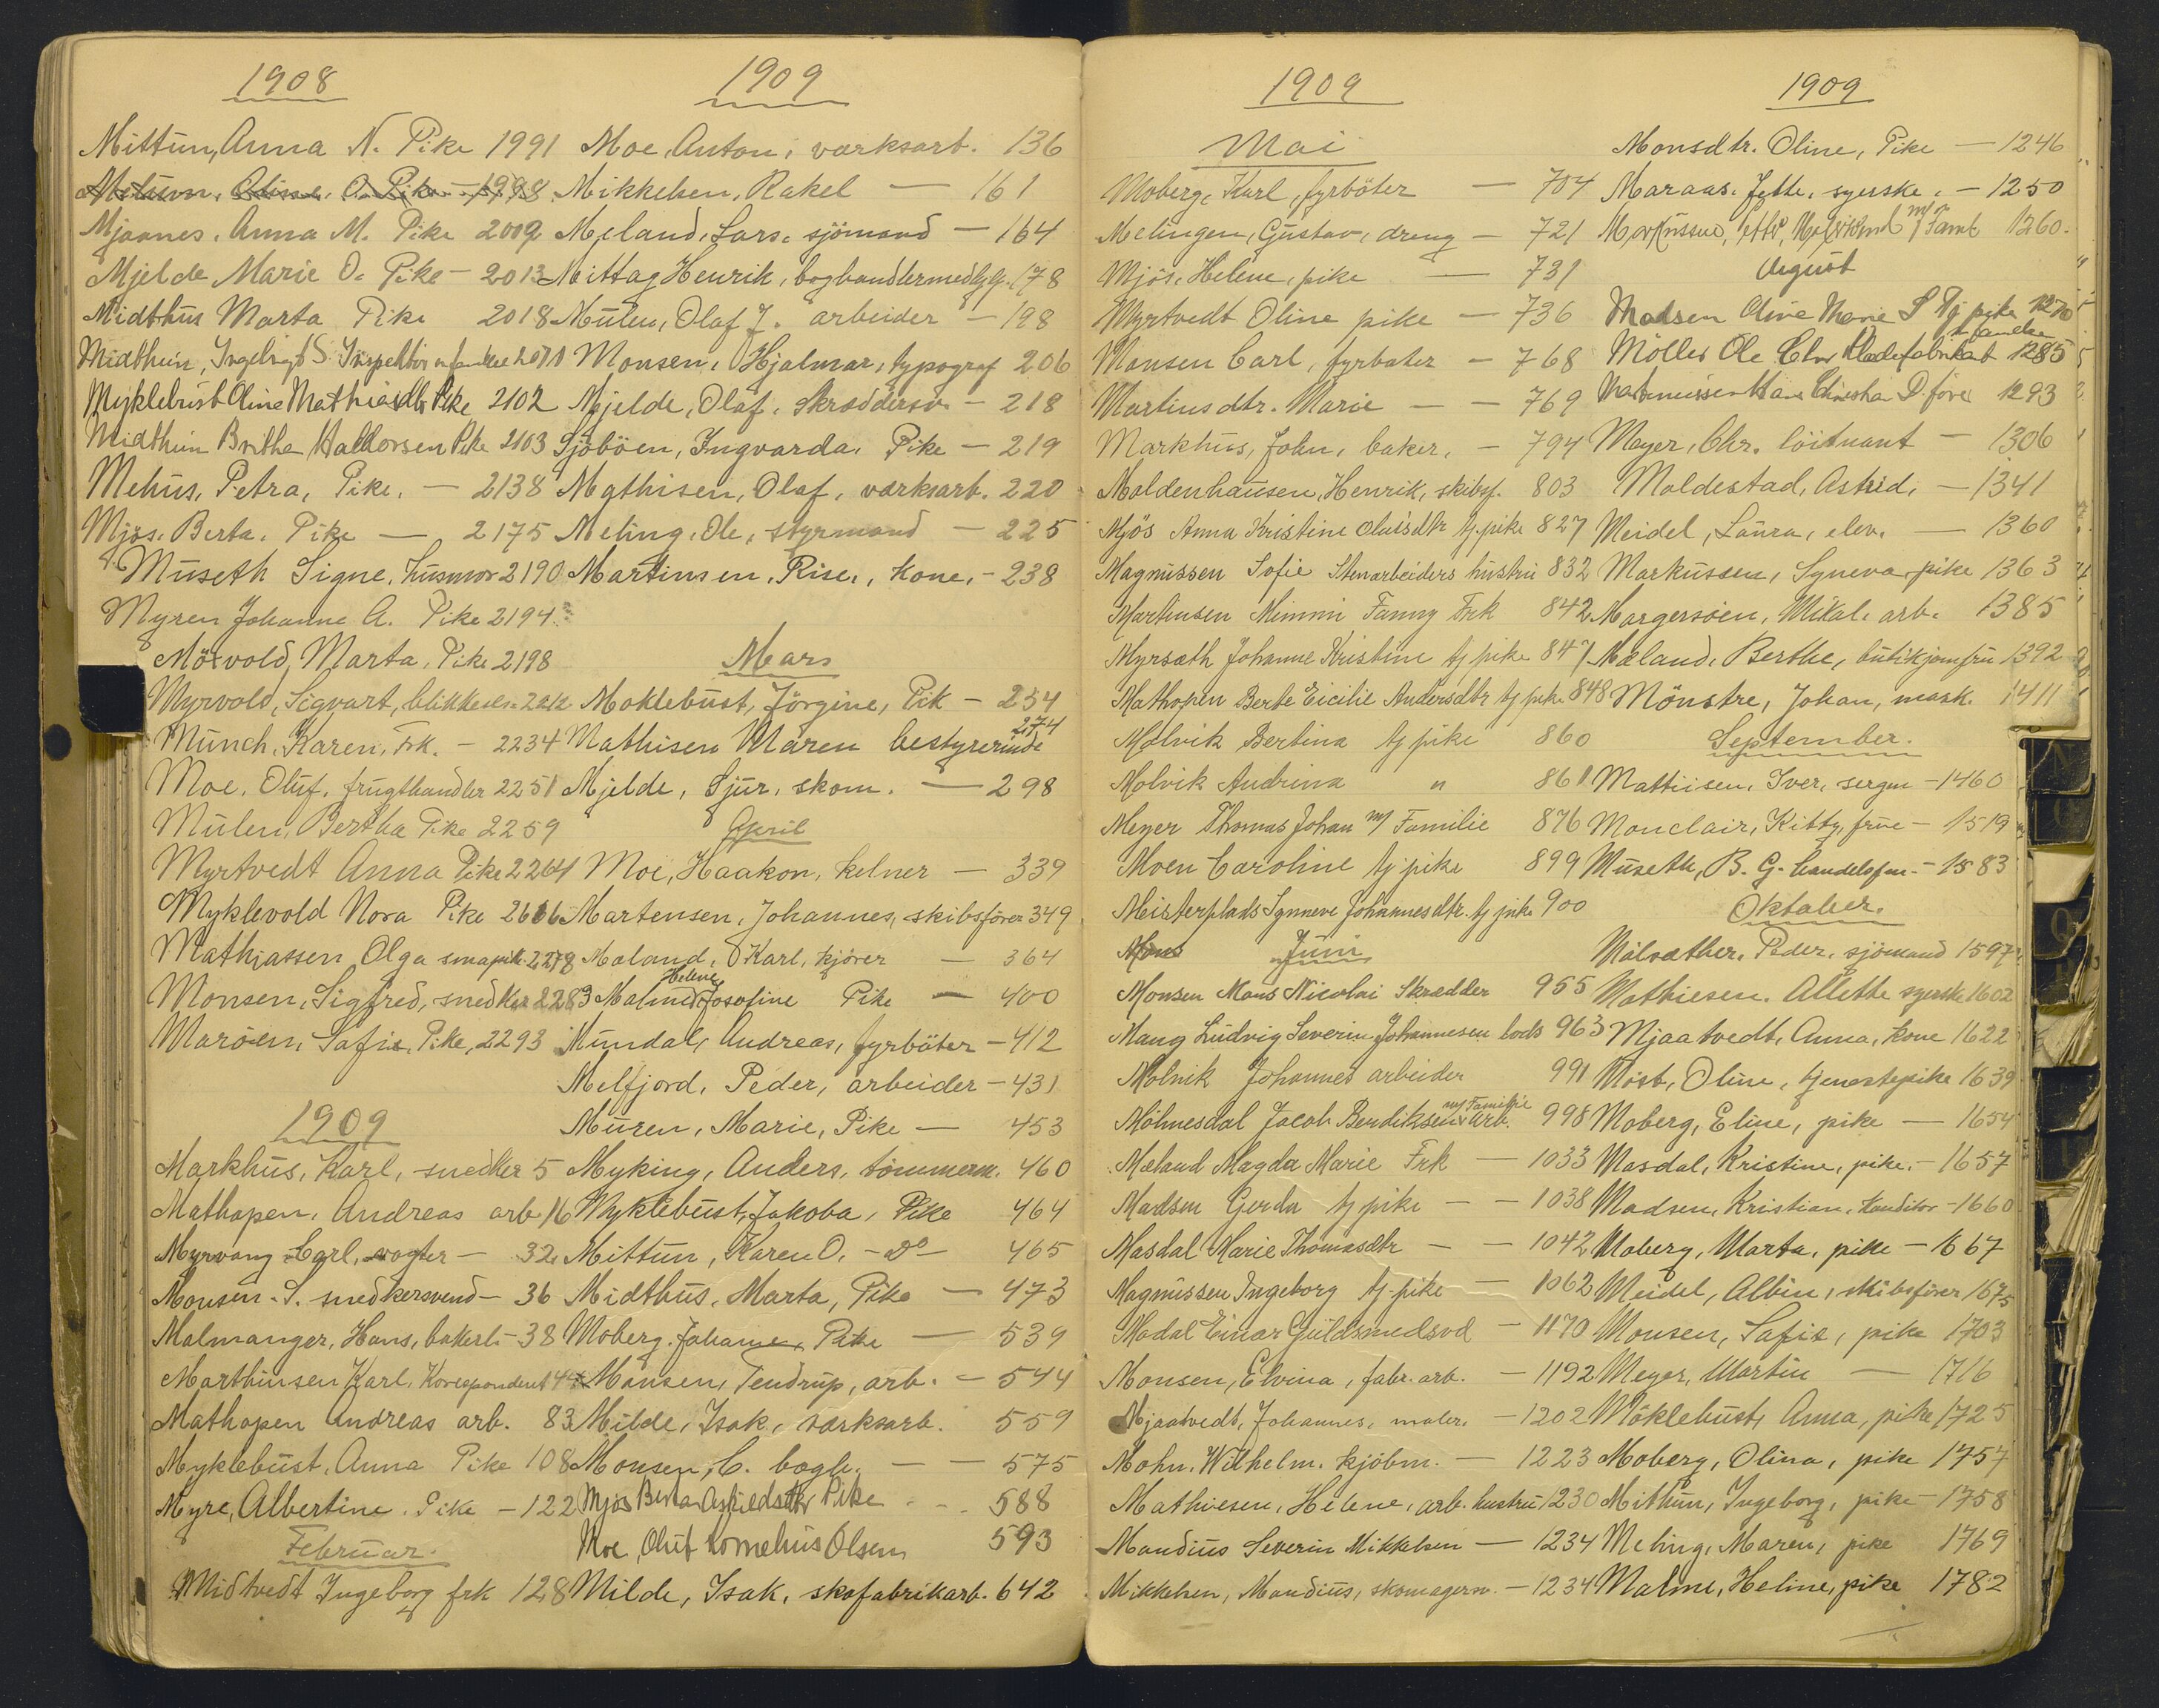 1908
Mittun, Anna N. Pike 1991
Pike 1998
Mjaanes, Anna M. Pike 2009
Mjelde Marie O. Pike - 2013
Midthus Marta Pike 2018
Midthun, Ingebrigt S. Inspektør
Myklebust Oline Mathiasdtr Pike 2102
Midthun Britha Halvorsen Pike 2103
Mehus, Petra, Pike. - 2138
Mjøs. Berta. Pike — 2175
Museth Signe, husmor 2190
Myren Johanne A. Pike 2194
Mörvold, Marta, Pike 2198
Myrvold, Sigvart, blikkesl.
Münch, Karen, Frk. - 2234
Moe. Oluf. frugthandler 2251
Mulen, Bertha Pike 2259
Myrtvedt Anna Pike 2264
Myklevold Nora Pike
Mathiassen Olga smaapike 2278
Monsen, Sigfred, snedker 2283
Maröen, Sofie, Pike, 2293
1909
Markhus, Karl, snedker 5
Mathopen, Andreas arb. 16
Myrvang Carl, vogter — 32
Monsen. S. snedkersvend - 36
Malmanger, Hans, bakerl. - 38
Marthinsen Karl. Korespondent
Mathopen Andreas arb. 83
Myklebust, Anna Pike 108
Myre, Albertine. Pike - 122
Februar.
Midtvedt Ingeborg frk 128
1909
Moe, Anton, værksarb. 136
Mikkelsen, Rakel — 161
Mjeland, Lars. sjömand — 164
Mittag Henrik, boghandlermedhj. 178
Mulen, Olaf J. arbeider — 198
Monsen, Hjalmar, typograf 206
Mjelde, Olaf, skræddersv. — 218
Sjöböen, Ingvarda. Pike — 219
Mathisen, Olaf, værksarb. 220
Meling. Ole, styrmand — 225
Martinsen, Rise, kone, - 238
Mars
Moklebust, Jörgine, Pik - 254
Mathisen Maren bestyrerinde 274
Mjelde, Sjur, skom. — 298
April
Moi, Haakon, kelner — 339
Martensen, Johannes, skibsförer 349
Moland, Karl, kjörer — 364
Malmed Helene Josofine Pike — 400
Mundal, Andreas, fyrböter - 412
Melfjord, Peder, arbeider - 431
Muren, Marie, Pike — 453
Myking, Anders, tömmerm. 460
Myklebust, Jakoba, Pike 464
Mittun, Karen O. - do - 465
Midthus, Marta, Pike — 473
Moberg. Johanne, Pike — 539
Monsen, Tendrup, arb. - 544
Milde, Isak, værksarb. 559
Monsen, C. bogh. — — 575
Mjøs Berta Askildsdtr Pike - - 588
Moe, Oluf Kornelius Olsen 593
Milde, Isak, skofabrikarb. 642
1909
Mai
Moberg, Karl, fyrböter — 704
Melingen, Gustav, dreng — 721
Mjös, Helene, pike — 731
Myrtvedt Oline pike — 736
Monsen Carl, fyrböter - 768
Martinsdtr. Marie — — 769
Markhus, John, baker, - 794
Moldenhausen, Henrik, skibsf. 803
Mjös Anna Kristine Olaisdtr tj.pike 827
Magnussen Sofie Stenarbeiders hustru 832
Martinsen Mimmi Fanny Frk 842
Myrsæth Johanne Kristine tj pike 847
Mathopen Berte Eicilie Andersdtr tj pike 848
Molvik Bertina tj pike 860
Molvik Andrina " 861
Meyer Thomas Johan m/ Familie 876
Moen Caroline tj pike 899
Meisterplads Synneve Johannesdtr. tj pike 900
Mons Juni
Monsen Mons Nicolai Skrædder 955
Mang Ludvig Severin Johannesen lods 963
Molnik Johannes arbeider 991
Mölmesdal Jacob Bendiksen m/ Familie Arb. 998
Mæland Magda Marie Frk — 1033
Madsen Gerda tj pike — — 1038
Masdal Marie Thomasdtr — — 1042
Magnussen Ingeborg tj.pike — 1062
Modal Einar Guldsmedsvd — 1170
Monsen, Elvina, fabr. arb. - 1192
Mjaatvedt, Johannes, maler. - 1202
Mohn. Wilhelm. kjöbm. — 1223
Mathiesen, Helene, arb. hustru 1230
Mandius Severin Mikkelsen — 1234
Mikkelsen, Mandius, skomagersv. - 1234
1909
Monsdtr. Oline, Pike — 1246
Maraas. Jette. syerske. - 1250
Markussen, m/ Faml 1260.
August
Madsen Oline Marie S Tj pike 1270
Möller Ole Chr. m familie 1285
Hans Christian D. förer 1293
Meyer, Chr. löitnant — 1306
Moldestad, Astrid, — 1341
Meidel, Laura, elev. — 1360
Markussen, Syneva pike 1363
Margersöien, Mikal. arb. 1385
Mæland, Berthe, butikjomfru 1392
Mönstre, Johan, mask. 1411
September.
Mattiisen, Iver, sergn - 1460
Monclair, Kitty, frue - 1519
Museth, B. G. handelsfm. - 1583
Oktober.
Peder, sjömand 1597
Mathiesen. Allette syerske 1602
Mjaatvedt, Anna, kone 1622
Most, Oline, tjenestepike 1639
Moberg, Eline, pike — 1654
Masdal, Kristine, pike, - 1657
Madsen, Kristian, konditor - 1660
Moberg, Marta, pike - 1667
Meidel, Albin, skibsförer 1675
Monsen, Sofie, pike 1703
Meyer, Martin — 1716
Möklebust, Anna, pike 1725
Moberg, Olina, pike 1757
Mithun, Ingeborg, pike - 1758
Meling, Maren, pike 1769
Malme, Heline, pike 1782